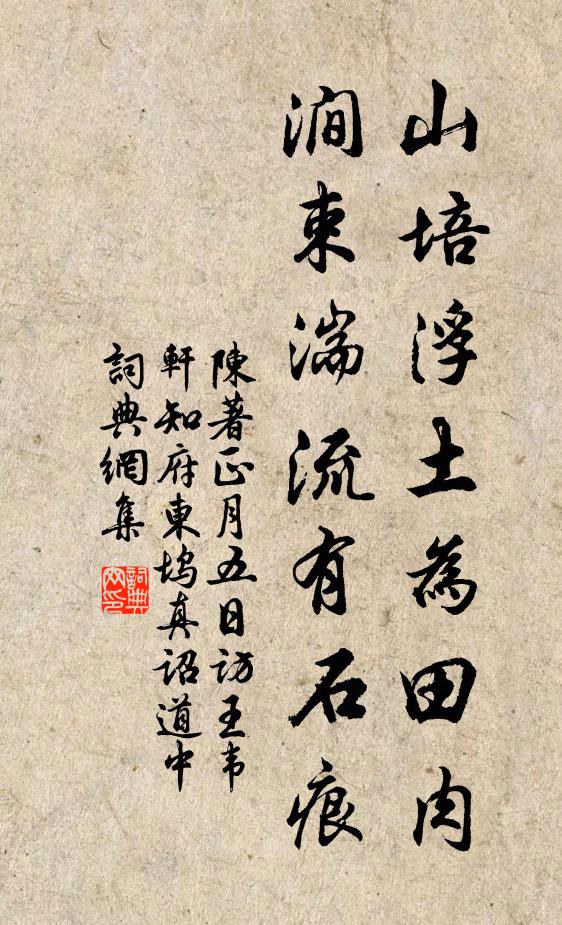 山培浮土為田肉
澗束湍流有石痕
陳著正月五日訪王韦
軒知府東塢真詔道中
詞典網集
詞典
网印